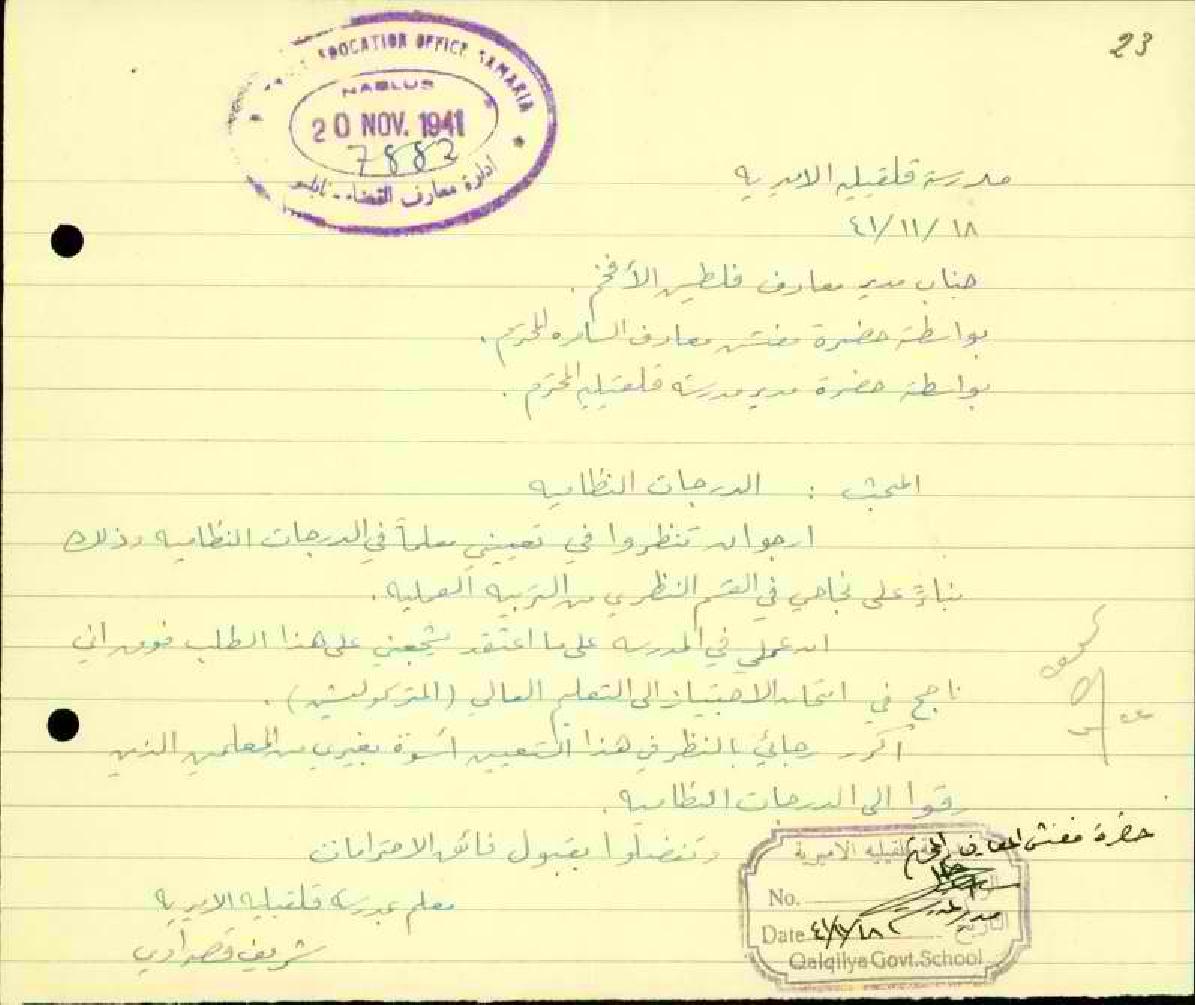 23
EDUCATION OFFICE SAMARIA
NABLUS
20 NOV. 1941
7882
ادارة معارف القضاء - نابلس
مدرسة قلقيليه الاميريه
٤١/١١/١٨
جناب مدير معارف فلسطين الأفخم .
بواسطة حضرة مفتش معارف السامره المحترم .
بواسطة حضرة مدير مدرسة قلقيليه المحترم .
المبحث : الدرجات النظاميه
ارجو ان تنظروا في تعييني معلماً في الدرجات النظاميه وذلك
بناءً على نجاحي في القسم النظري من التربيه العمليه .
ان عملي في المدرسه على ما اعتقد يشجعني على هذا الطلب فوق اني
ناجح في امتحان الاجتياز الى التعليم العالي (المتركوليشن) .
أكرر رجائي بالنظر في هذا التعيين أسوة بغيري من المعلمين الذين
رقوا الى الدرجات النظاميه .
وتفضلوا بقبول فائق الاحترامات
معلم بمدرسة قلقيليه الاميريه
شريف
حضرة مفتش المعارف المحترم
قلقيليه الاميرية
No.
مدير المدرسة
التاريخ
Date ٤١/١١/١٨
Qalqilya Govt. School